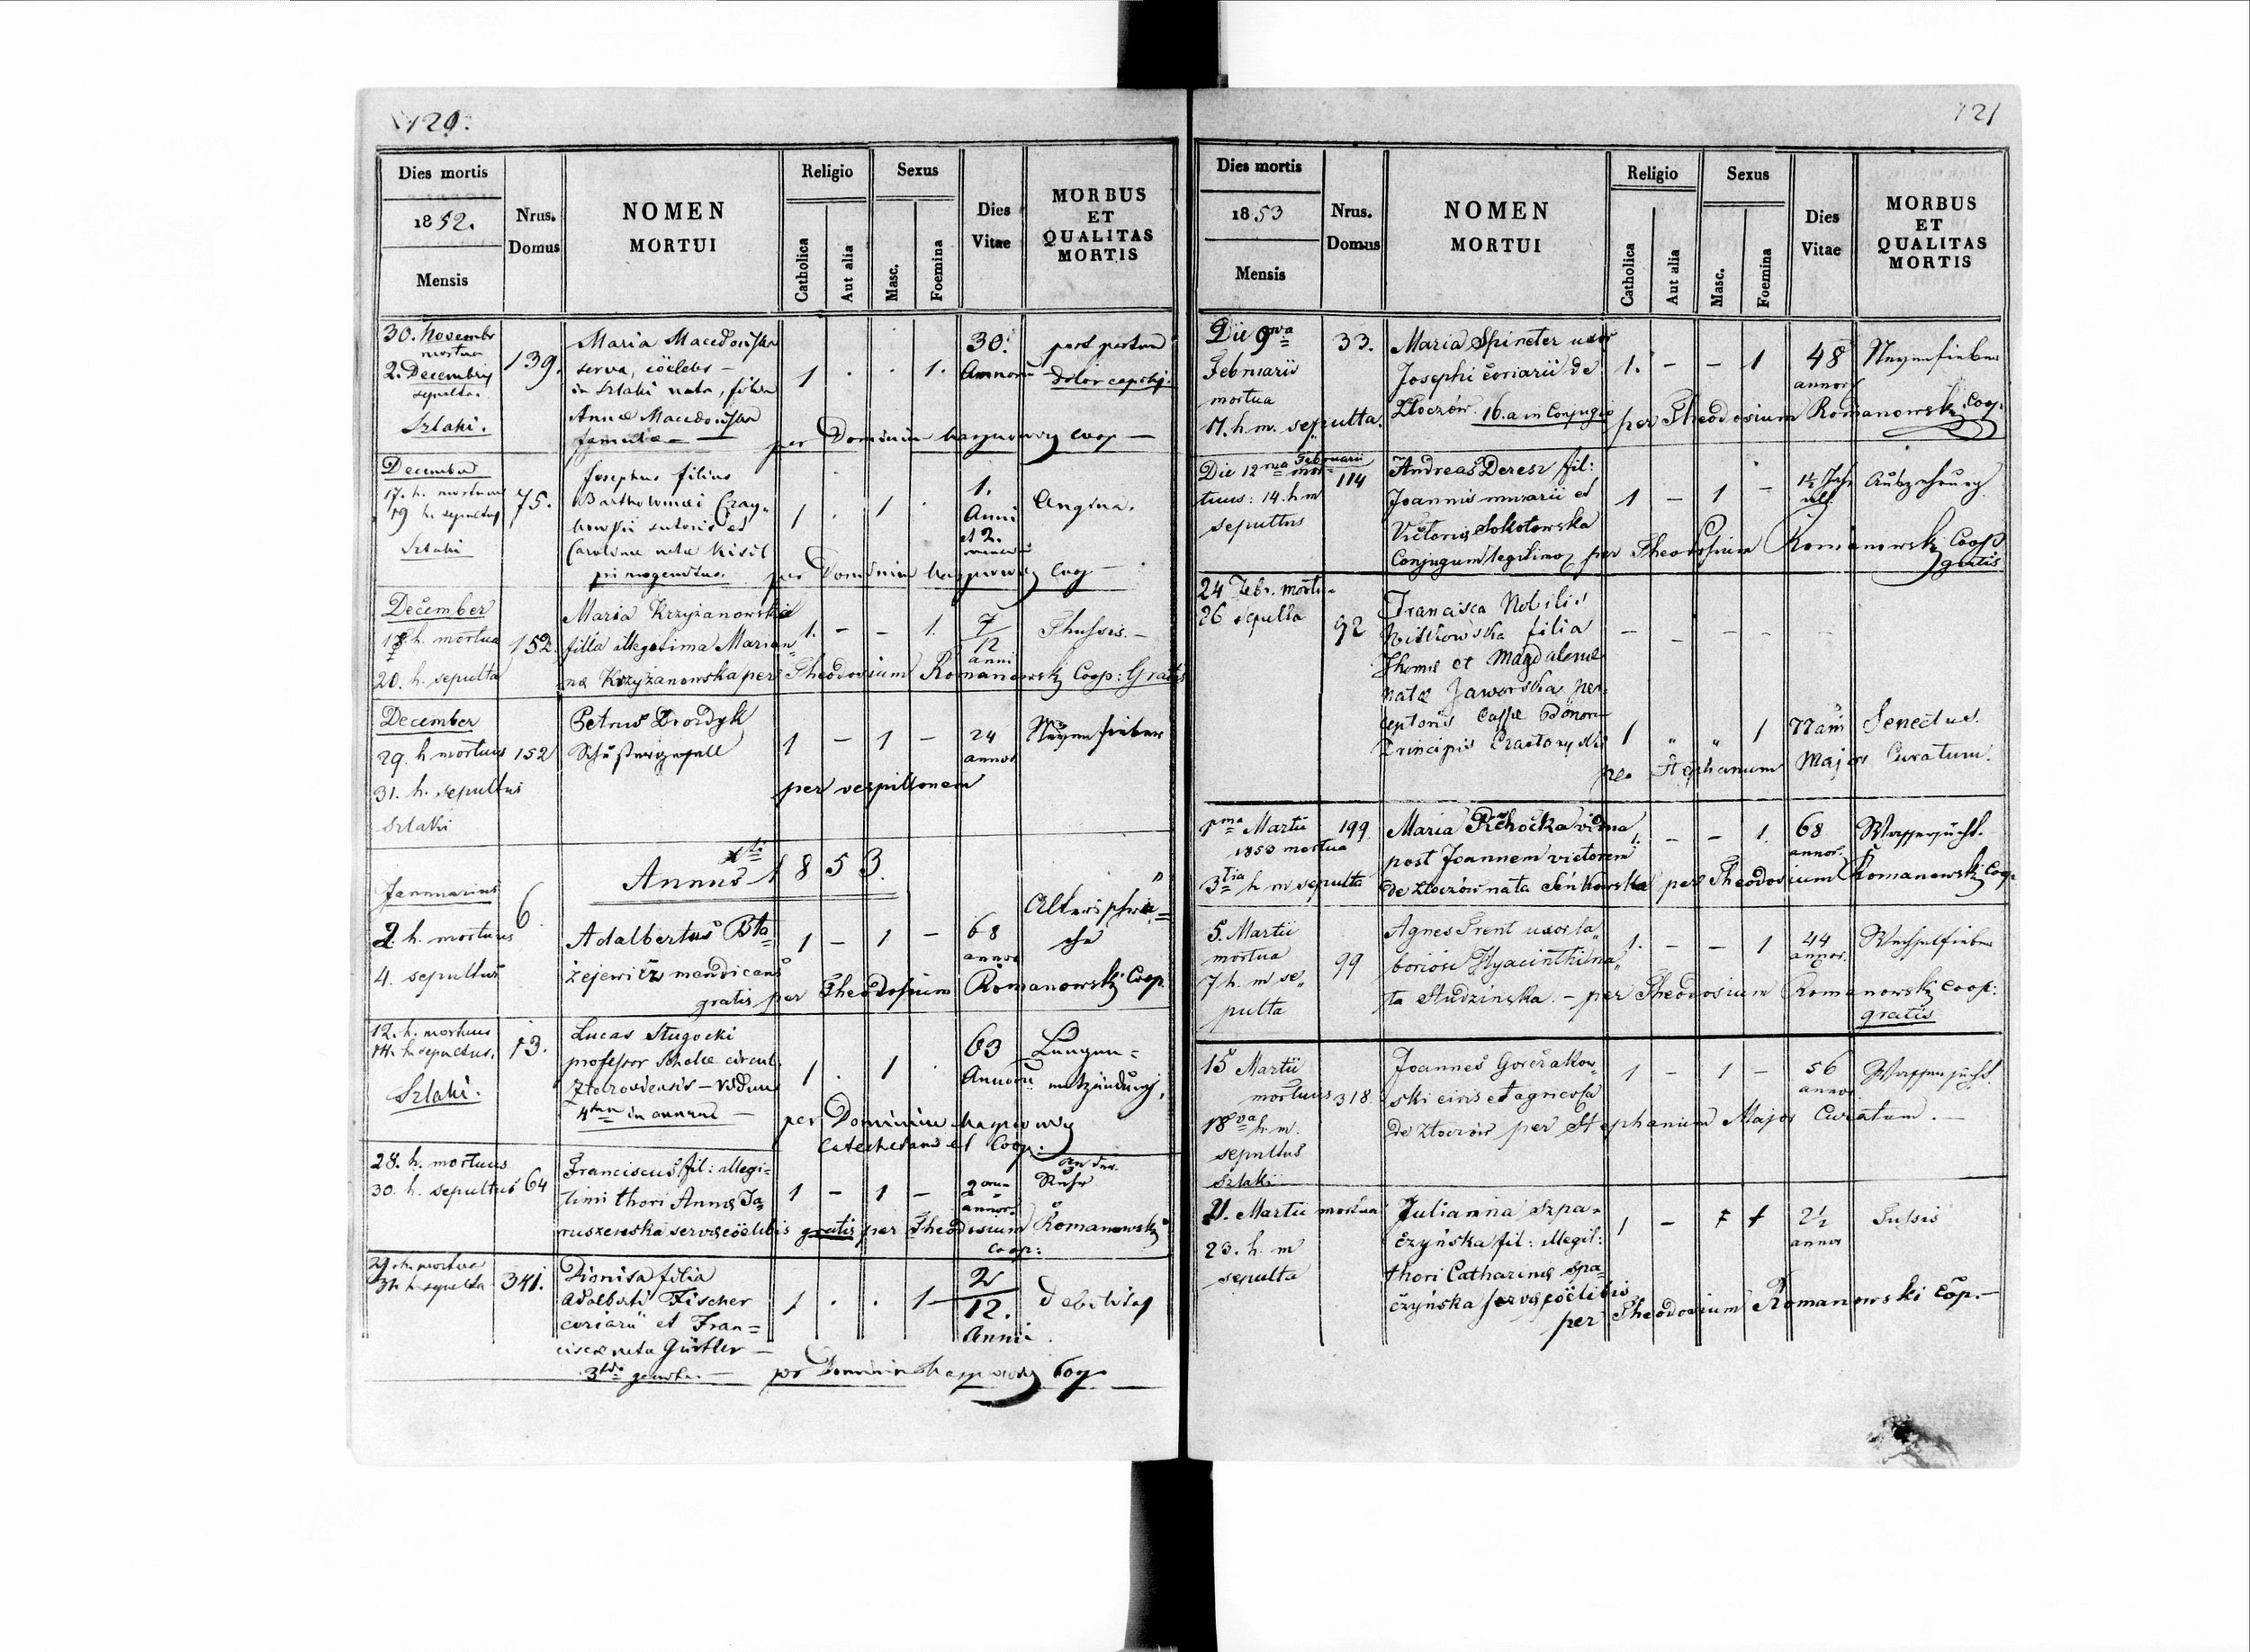 120.
Dies mortis
1852.
Mensis
Nrus.
Domus
NOMEN
MORTUI
Religio
Catholica
Aut alia
Sexus
Masc.
Foemina
Dies
Vitae
MORBUS
ET
QUALITAS
MORTIS
30. Novembr
mortua
2. Decembris
sepulta.
Szlaki.
139.
Maria Macedońska
serva, cöelebs –
in Szlaki nata, filia
Annæ Macedońska
famulæ –
1 . . 1.
30.
Annorū
post partum
dolor capitis.
per Dominium coop –
December
17. h. mortuus
19 h. sepultus
Szlaki
75.
Josephus filius
Bartholomæi Czay-
kowski sutoris et
Carolinæ natæ Kisil
primogenitus.
1 . 1 .
1.
Anni
et 2.
Angina.
per Dominium coop –
December
18 h. mortua
20. h. sepulta
152.
Maria Krzyżanowska
filia illegitima Marian„
næ Krzyżanowska per Theodosium Romanowski Coop: Gratis
1. – – 1.
7
12
anni
Thussis. –
December
29. h mortuus
31. h. sepultus
Szlaki
152
Petrus Drozdyk
Schustergesell
1 – 1 –
24
annor
Nervenfieber
per vespillonem
Annus 1853.
Januarius
2. h. mortuus
4. sepultus
6
Adalbertus Bła=
żejewicz mendicans
gratis per Theodosium Romanowski Coop
1 – 1 –
68
annor
Altersschwä=
che
12. h. mortuus
14. h. sepultus.
Szlaki.
13.
Lucas Stugocki
professor Scholæ circul.
Złoczoviensis – viduus
in annum –
1 . 1 .
63
Annorū
Lungen=
entzündung.
per Dominium
catechetam et Coop.
28. h. mortuus
30. h. sepultus
64
Franciscus fil: illegi=
timi thori Annæ Ja=
ruszewska servæ cöelibis gratis per Theodosium Romanowski
coop:
1 – 1 –
2
annor.
an der
Ruhr
29. h. mortua
31. h. sepulta
341.
Dionisa filia
Adalberti Fischer
coriarii et Fran=
ciscæ nata Gürtler –
3tio genita. –
1 . . 1
2
12.
Anni
debilitas
per Dominium Coop
121
Dies mortis
1853
Mensis
Nrus.
Domus
NOMEN
MORTUI
Religio
Catholica
Aut alia
Sexus
Masc.
Foemina
Dies
Vitae
MORBUS
ET
QUALITAS
MORTIS
Die 9na
Februarii
mortua
11. h. m. sepulta.
33.
Maria Spineter uxor
Josephi coriarii de
Złoczów. 16. a in Conjugio
1. – – 1
48
annor
Nervenfieber
per Theodosium Romanowski Coop:
Die 12ma Februarii mor-
tuus: 14. h m
sepultus
114
Andreas Deresz fil:
Joannis murarii et
Victoriæ Sokołowska
Conjugum legitimor per Theodosium Romanowski Coop
gratis
1 – 1 –
1½ Jahr
alt
Auszehrung
24 Febr. mortu-
26 sepulta
92
Francisca Nobilis
Witkowska filia
Thomæ et Magdalenæ
natæ Jaworska, per-
ceptoris Cassæ Bonorū
Principis Czartoryski
– – – – –
1 „ „ 1
77 ann
Senectus.
per Stephanum Major Curatum.
1ma Martii
1853 mortua
3tia h m sepulta
199
Maria Rehočka vidua
post Joannem victorem
de Złoczów nata Sińkowska per Theodosium Romanowski Coop
1. – – 1.
68
annor.
Wassersucht.
5. Martii
mortua
7 h. m se„
pulta
99
Agnes Prent uxor la„
boriosi Hyacinthi na„
ta Studzińska. – per Theodosium Romanowski coop:
gratis
1. – – 1
44
annor.
Wechselfieber
15 Martii
mortuus
18va h. m.
sepultus
Szlaki
318.
Joannes Gorczakow-
ski civis et agricola
de Złoczów per Stephanum Major Curatum. –
1 – 1 –
56
annor
Wassersucht.
21. Martii mortua
23. h. m
sepulta
Julianna Szpa=
czyńska fil: illegit:
thori Catharinæ Spa=
czyńska servæ cöelibis
per Theodosium Romanowski Coop. –
1 – 1 1
2½
annor
Tussis